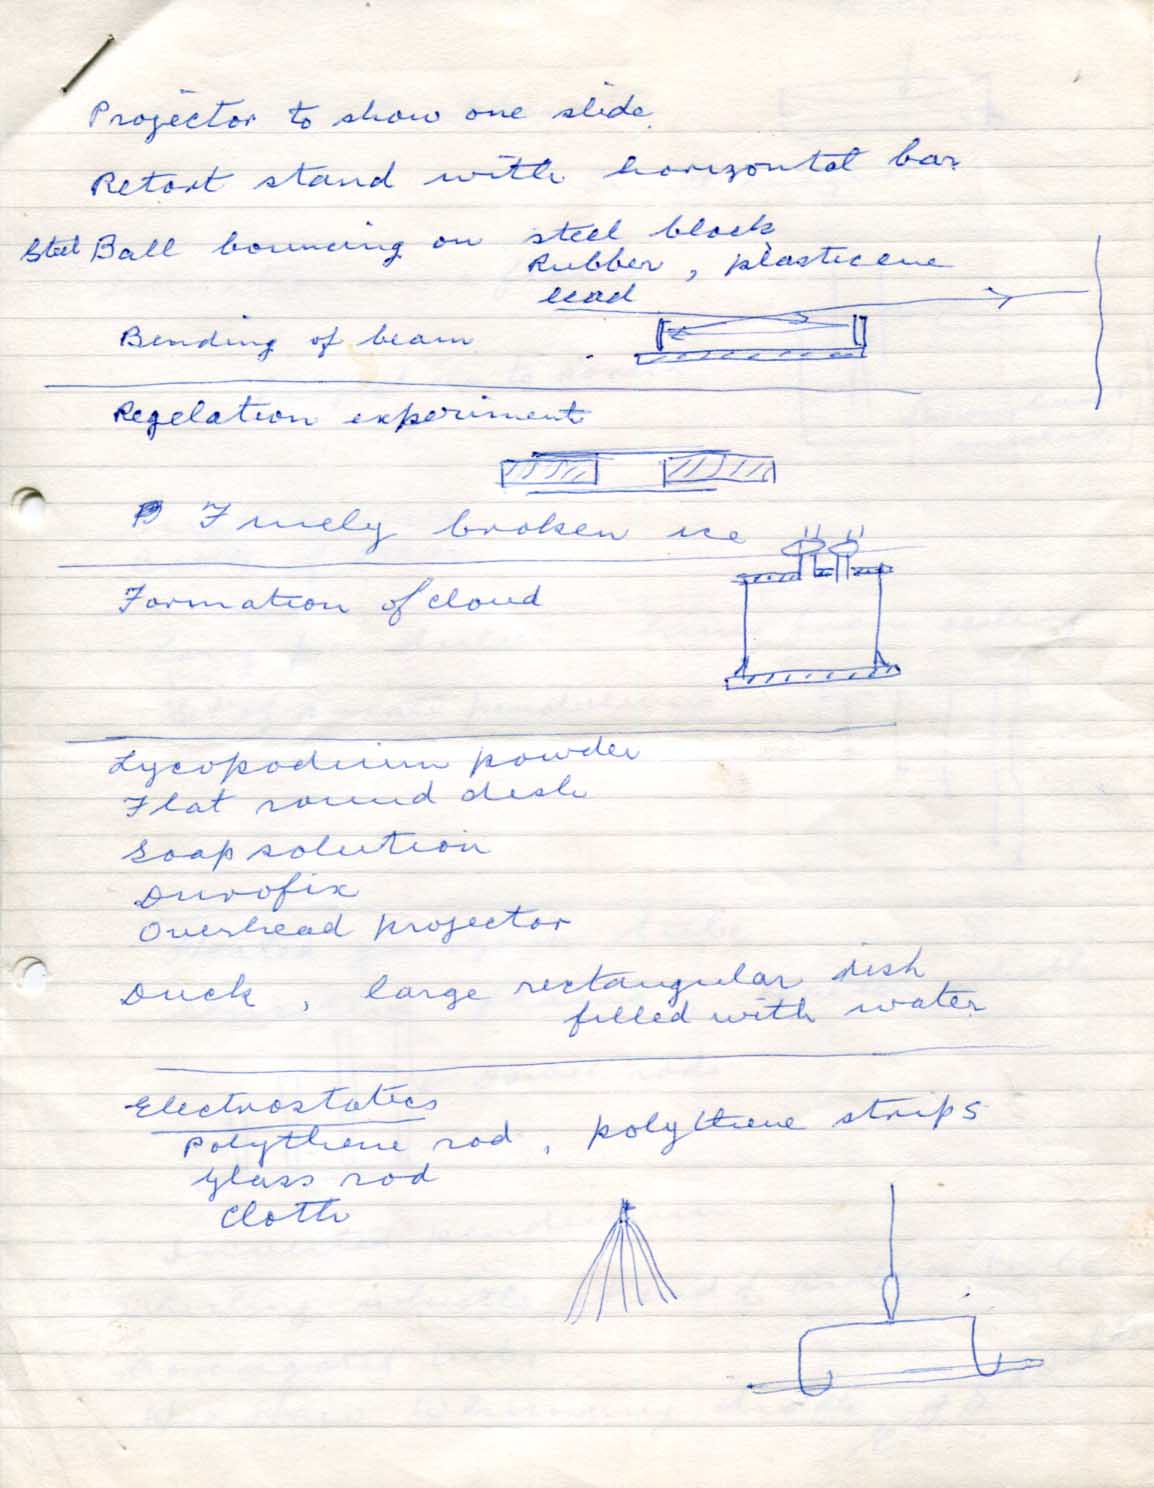 Projector to show one slide.
Retort stand with horizontal bar
Steel Ball bouncing on steel block
Rubber, plasticene
lead
Bending of beam
Regelation experiment
Finely broken ice
Formation of cloud
Lycopodium powder
Flat round dish
Soap solution
Durofix
Overhead projector
Duck, large rectangular dish
filled with water
Electrostatics
Polythene rod, polythene strips
Glass rod
Cloth